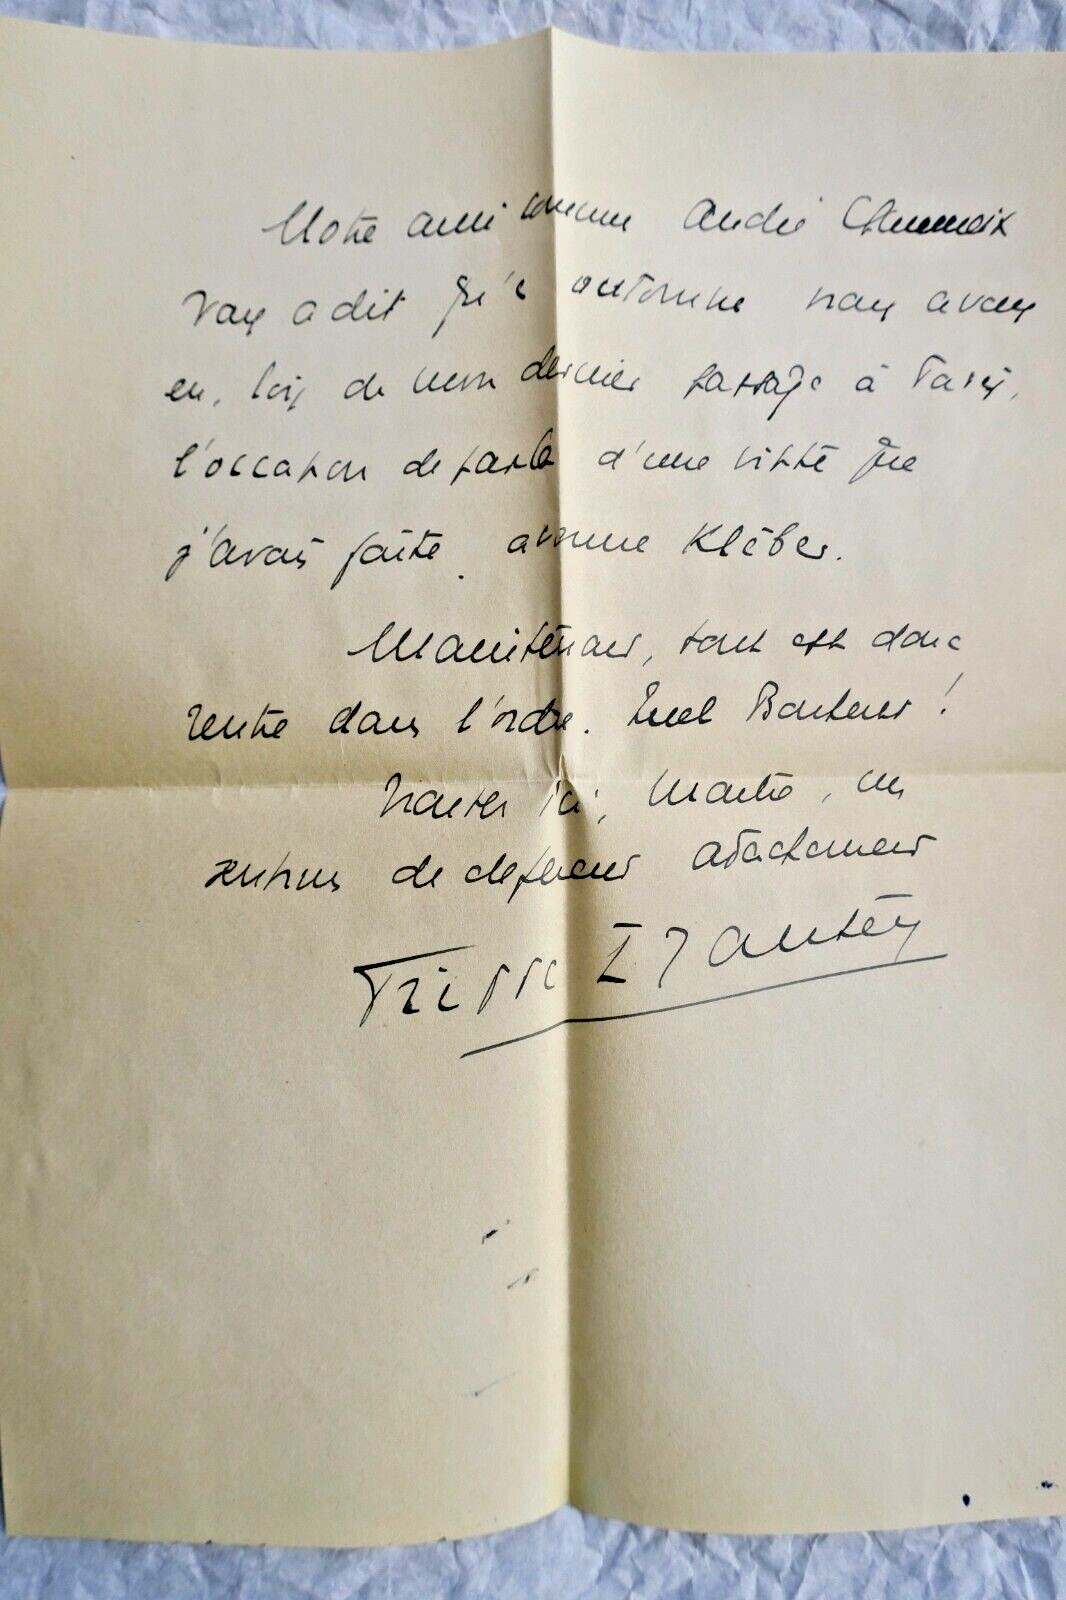 Notre ami commun André Chaumeix
vous a dit qu'en automne nous avons
eu, lors de mon dernier passage à Paris,
l'occasion de parler d'une visite que
j'avais faite avenue Kléber.
Maintenant, tout est donc
rentré dans l'ordre. Quel Bonheur !
Trouvez ici, Maître, mes
sentiments de déférent attachement